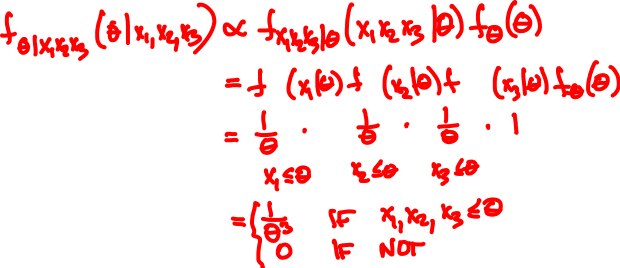 f_{θ|x₁x₂x₃}(θ|x₁,x₂,x₃) ∝ f_{x₁x₂x₃|θ}(x₁x₂x₃|θ) f_θ(θ)
= f (x₁|θ) f (x₂|θ) f (x₃|θ) f_θ(θ)
= 1/θ · 1/θ · 1/θ · 1
x₁≤θ x₂≤θ x₃≤θ
= { 1/θ³ IF x₁,x₂,x₃≤θ
0 IF NOT